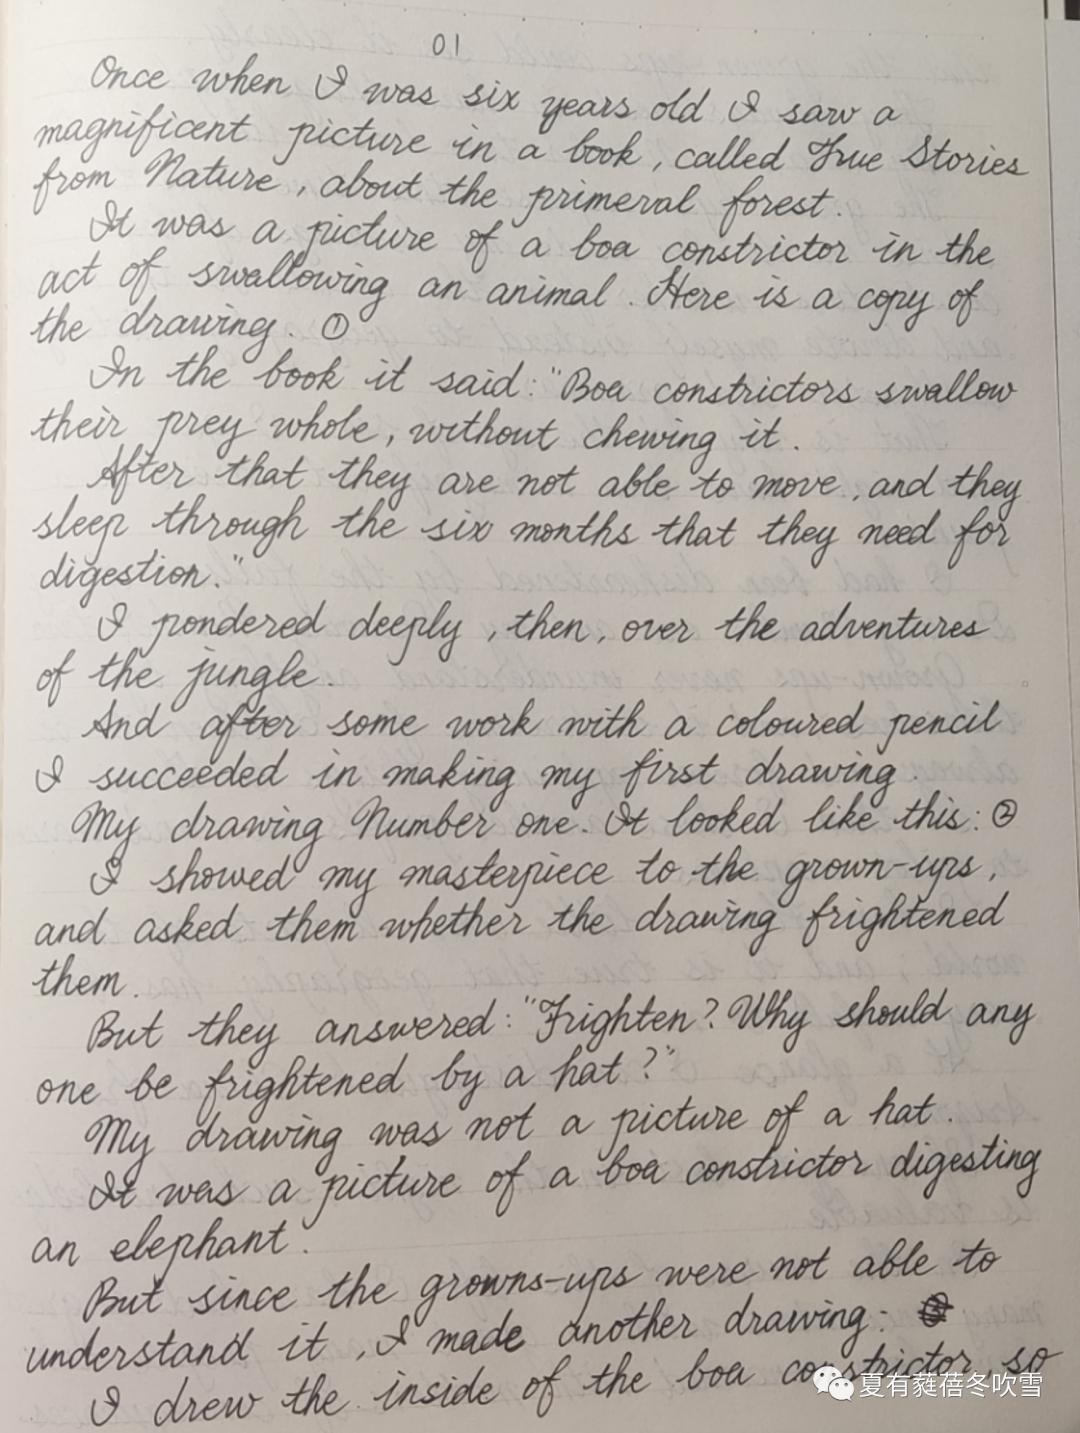 01
Once when I was six years old I saw a
magnificent picture in a book, called True Stories
from Nature, about the primeval forest.
It was a picture of a boa constrictor in the
act of swallowing an animal. Here is a copy of
the drawing. ①
In the book it said: "Boa constrictors swallow
their prey whole, without chewing it.
After that they are not able to move, and they
sleep through the six months that they need for
digestion."
I pondered deeply, then, over the adventures
of the jungle.
And after some work with a coloured pencil
I succeeded in making my first drawing.
My drawing Number one. It looked like this: ②
I showed my masterpiece to the grown-ups,
and asked them whether the drawing frightened
them.
But they answered: "Frighten? Why should any
one be frightened by a hat?"
My drawing was not a picture of a hat.
It was a picture of a boa constrictor digesting
an elephant.
But since the growns-ups were not able to
understand it, I made another drawing:
I drew the inside of the boa constrictor, so
夏有蕤蓓冬吹雪